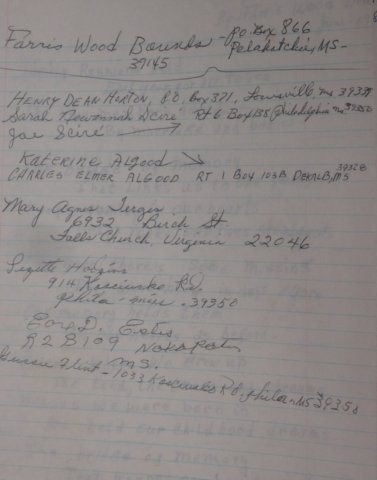 Farris Wood Bounds - P.O. Box 866
Pelahatchie, MS -
39145
HENRY DEAN HORTON, P.O. Box 371, Louisville, ms 39339
Sarah Scire Rt 6 Box 138 Philadelphia ms 39350
Joe Scire
KATERINE ALGOOD
CHARLES ELMER ALGOOD RT 1 BOX 103B DEKALB, MS 39328
Mary Agnes
6932 Birch St
Falls Church Virginia 22046
914 Kosciusko Rd.
Phila - miss. 39350
D. Estes
R2 B109
MS.
Flint - 1033 Kosciusko Rd. Phila - MS 39350